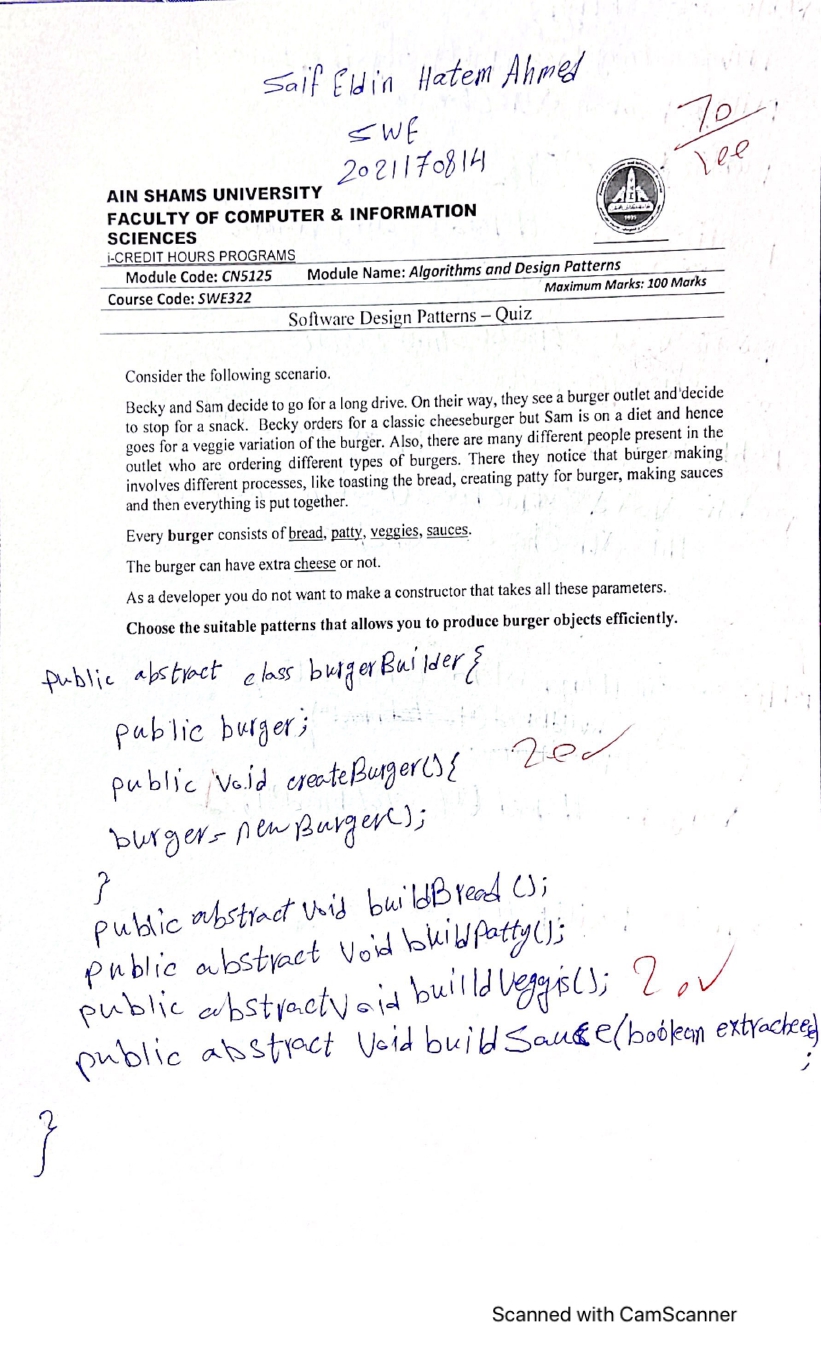 Saif Eldin Hatem Ahmed
SWE
2021170814
70
100
AIN SHAMS UNIVERSITY
FACULTY OF COMPUTER & INFORMATION
SCIENCES
i-CREDIT HOURS PROGRAMS
Module Code: CN5125 Module Name: Algorithms and Design Patterns
Course Code: SWE322 Maximum Marks: 100 Marks
Software Design Patterns – Quiz
Consider the following scenario.
Becky and Sam decide to go for a long drive. On their way, they see a burger outlet and decide
to stop for a snack. Becky orders for a classic cheeseburger but Sam is on a diet and hence
goes for a veggie variation of the burger. Also, there are many different people present in the
outlet who are ordering different types of burgers. There they notice that burger making
involves different processes, like toasting the bread, creating patty for burger, making sauces
and then everything is put together.
Every burger consists of bread, patty, veggies, sauces.
The burger can have extra cheese or not.
As a developer you do not want to make a constructor that takes all these parameters.
Choose the suitable patterns that allows you to produce burger objects efficiently.
public abstract class burgerBuilder{
public burger;
public void createBurger(){ 20
burger= new Burger();
}
public abstract void buildBread ();
public abstract void buildPatty();
public abstract void buildVeggis(); 20
public abstract void buildSauce(boolean extrachees)
;
}
Scanned with CamScanner